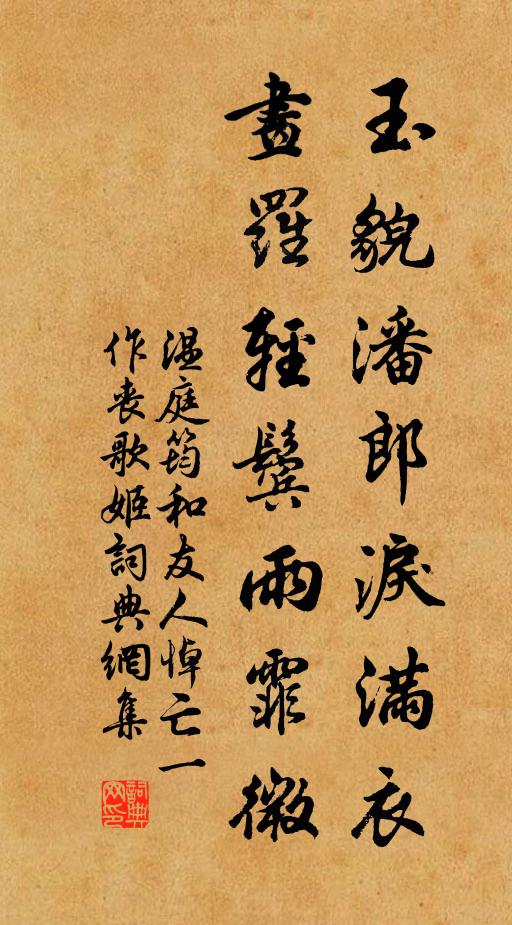 玉貌潘郎淚滿衣
畫羅輕鬢雨霏微
溫庭筠和友人悼亡一
作喪歌姬詞典網集
詞典
網印